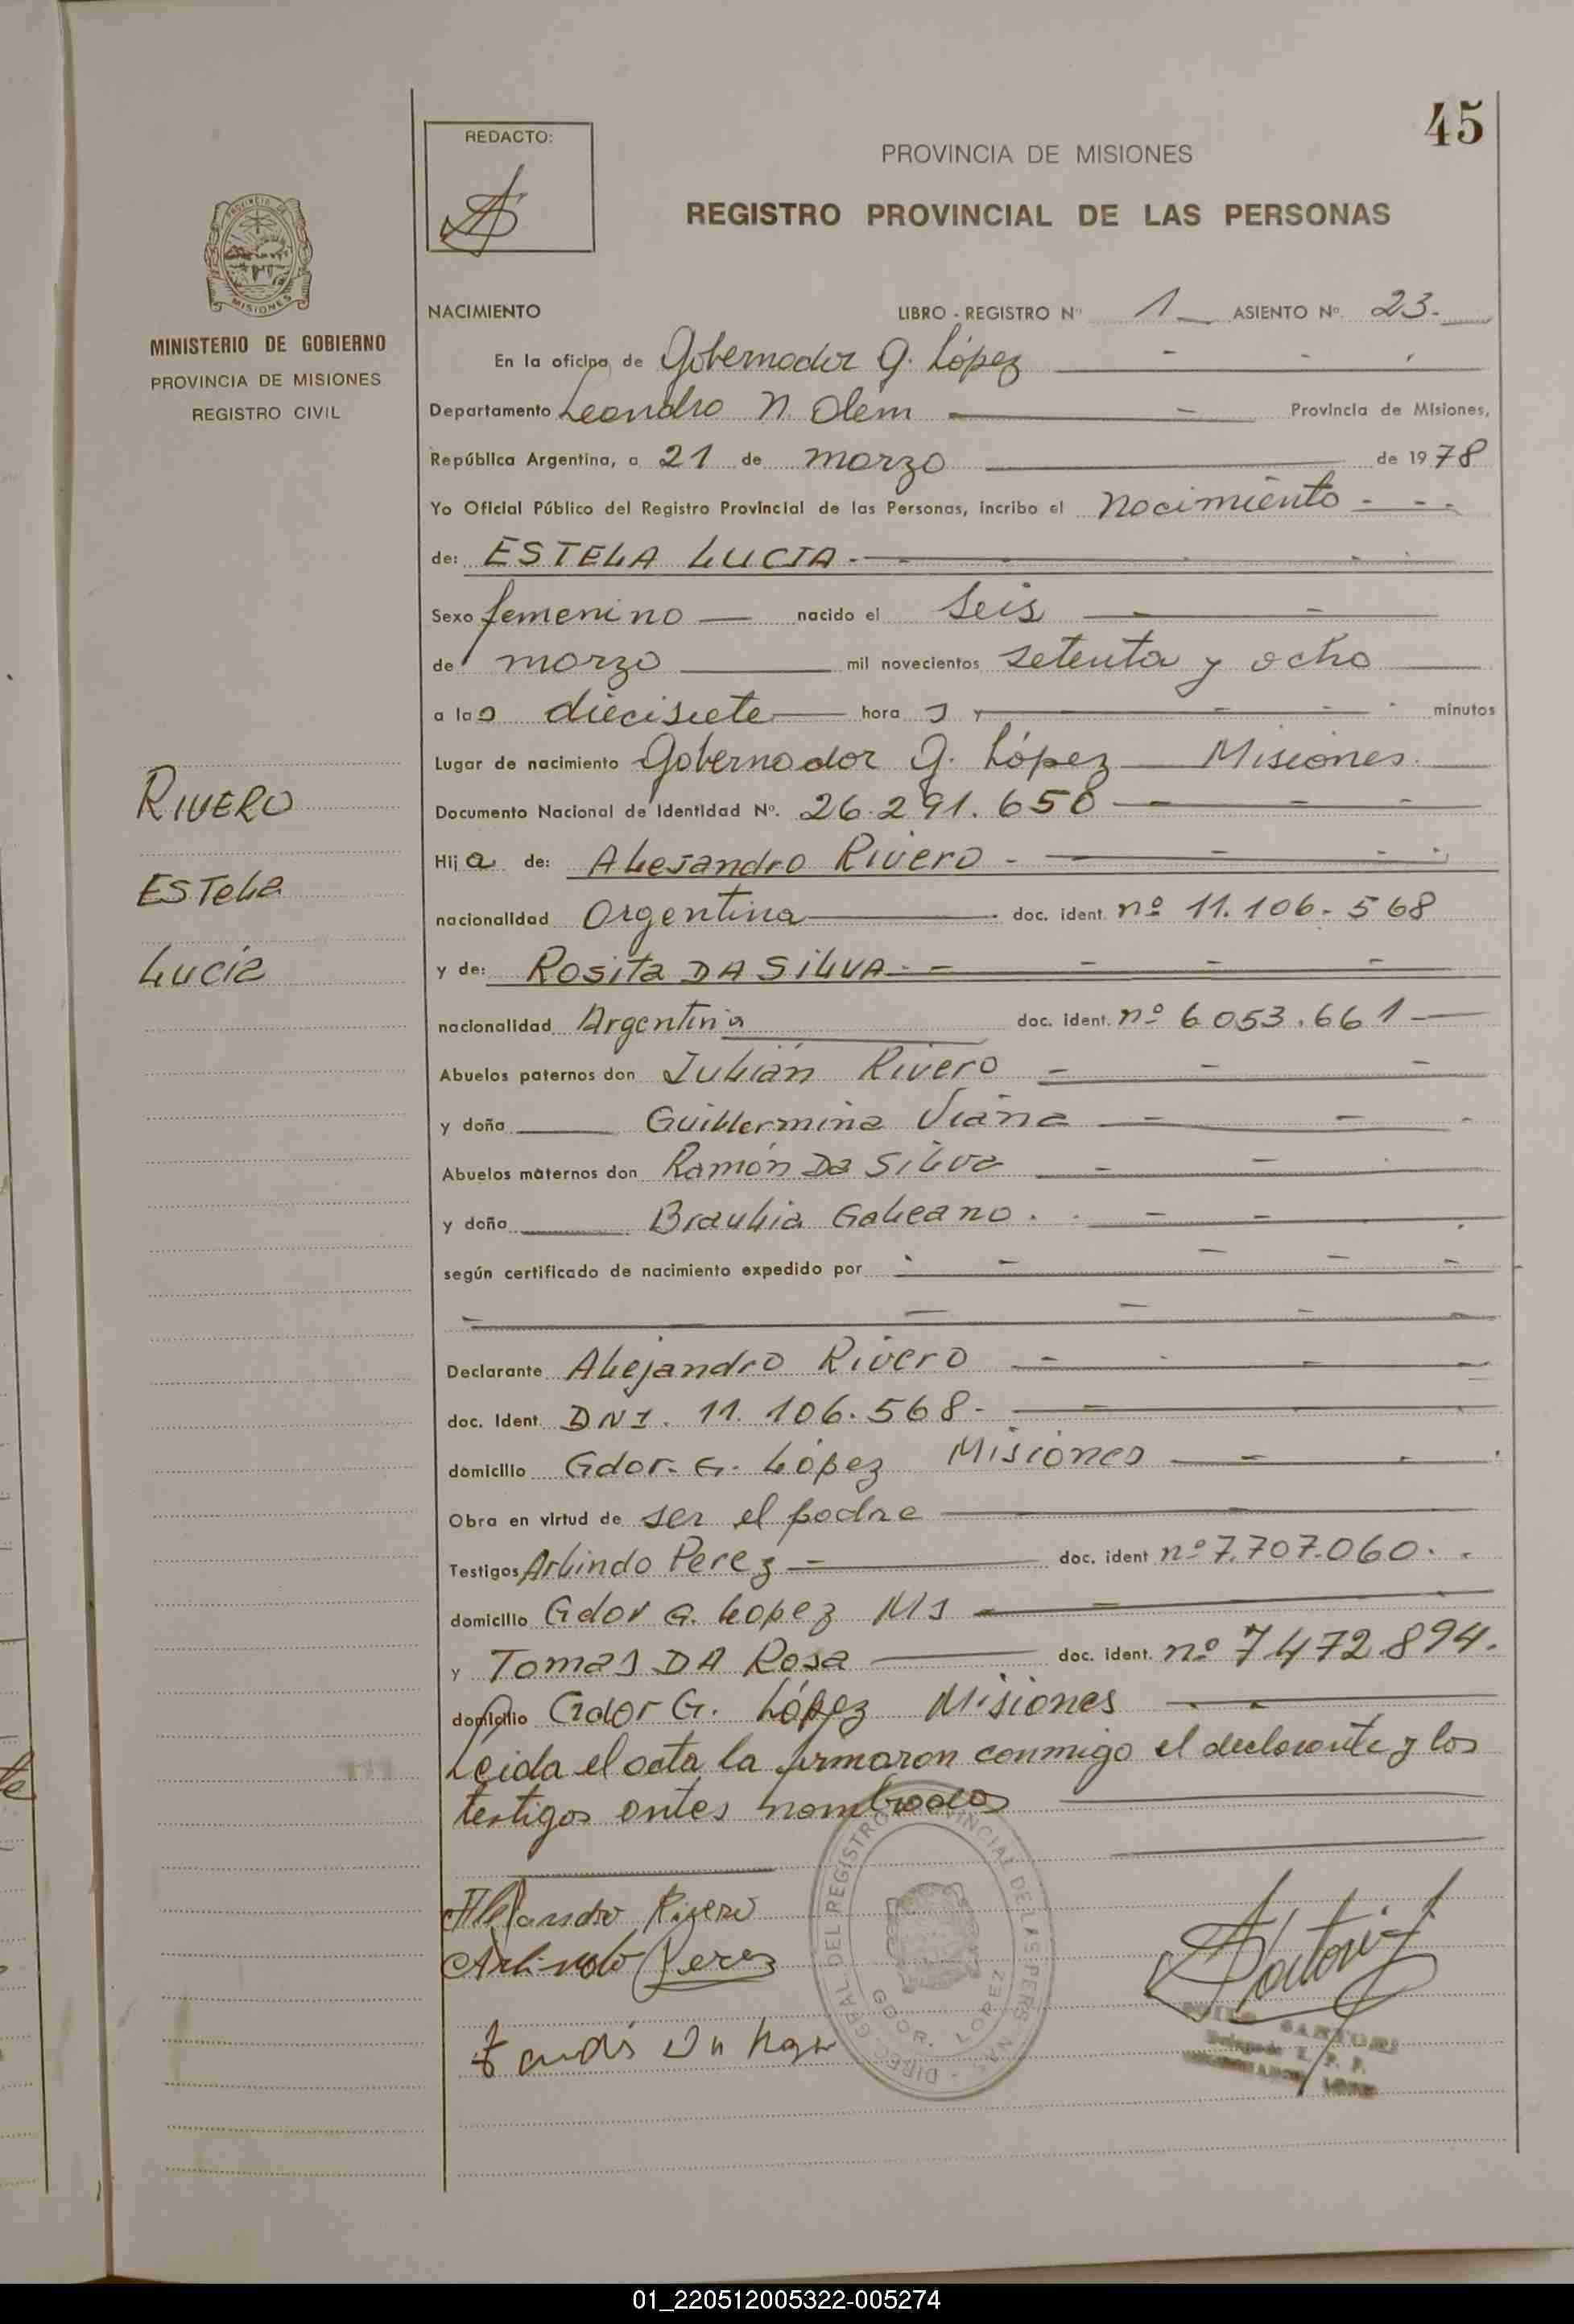 45
REDACTO:
PROVINCIA DE MISIONES
REGISTRO PROVINCIAL DE LAS PERSONAS
PROVINCIA DE
MISIONES
MINISTERIO DE GOBIERNO
PROVINCIA DE MISIONES
REGISTRO CIVIL
RIVERO
ESTELA
LUCIA
NACIMIENTO LIBRO - REGISTRO Nº 1 ASIENTO Nº 23.
En la oficina de Gobernador G. López
Departamento Leandro N. Alem Provincia de Misiones,
República Argentina, a 21 de marzo de 1978
Yo Oficial Público del Registro Provincial de las Personas, incribo el nacimiento
de: ESTELA LUCIA.
Sexo femenino nacido el seis
de marzo mil novecientos setenta y ocho
a las diecisiete hora s y minutos
Lugar de nacimiento Gobernador G. López Misiones.
Documento Nacional de Identidad Nº. 26.291.650
Hij a de: Alejandro Rivero
nacionalidad Argentina doc. ident. nº 11.106.568
y de: Rosita DA SILVA
nacionalidad Argentina doc. ident. nº 6053.661
Abuelos paternos don Julián Rivero
y doña Guillermina Viana
Abuelos maternos don Ramón Da Silva
y doña Braulia Galeano.
según certificado de nacimiento expedido por
Declarante Alejandro Rivero
doc. Ident. DNI. 11.106.568.
domicilio Gdor. G. López Misiones
Obra en virtud de ser el padre
Testigos Arlindo Perez doc. ident nº 7.707.060.
domicilio Gdor G. Lopez Ms
y Tomas DA Rosa doc. ident. nº 7472.894.
domicilio Gdor G. López Misiones
Leida el acta la firmaron conmigo el declarante y los
testigos antes nombrados
Alejandro Rivero
Arlindo Perez
DIREC. GRAL. DEL REGISTRO PROVINCIAL DE LAS PERSONAS
GDOR. LOPEZ
SARTORI
Delegado
01_220512005322-005274